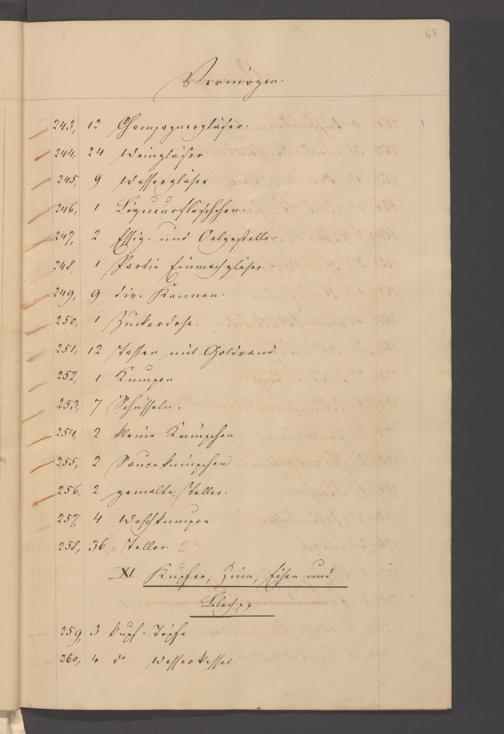 67
Vermögen.
243, 12 Champagnergläser.
244, 24 Weingläser
245, 9 Wassergläser
246, 1 Liqueurfläschchen.
247, 2 Essig- und Oelgestelle.
248. 1 Partie Einmachgläser
249, 9 div. Kannen.
250, 1 Zuckerdose.
251, 12 Tassen mit Goldrand
252, 1 Kumpen
253, 7 Schüsseln.
254, 2 kleine Kümpchen
255, 2 Saucekümpchen
256, 2 gemalte Teller.
257, 4 Waschkumpen
258, 36 Teller
XI. Kupfer, Zinn, Eisen und
Blech pp
259, 3 kupf. Töpfe
260, 4 do Wasserkessel